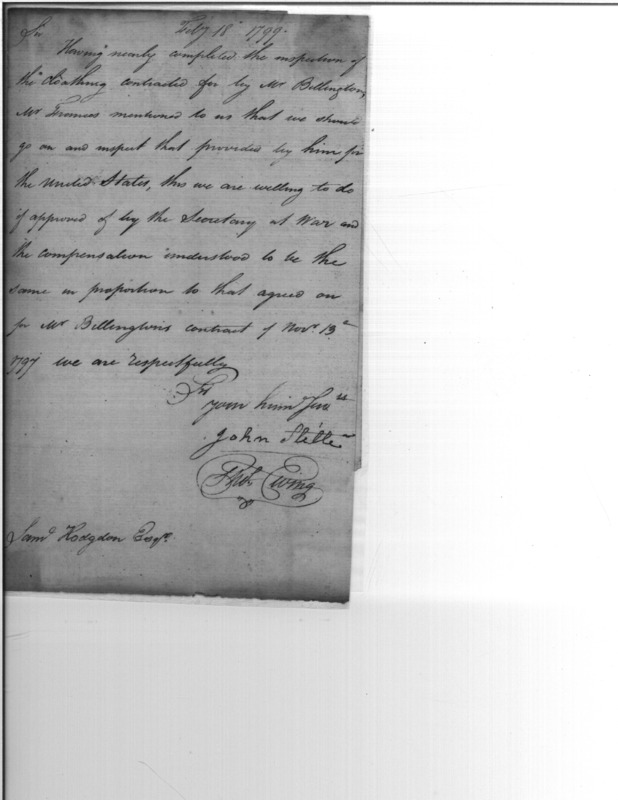 Feby 18th 1799.
Sir
Having nearly completed the inspection of
the Cloathing contracted for by Mr Billington,
Mr Frances mentioned to us that we should
go on and inspect that provided by him for
the United States, this we are willing to do
if approved of by the Secretary at War and
the compensation understood to be the
same in proportion to that agreed on
for Mr Billingtons contract of Novr 13th
1797 we are respectfully
Sir
your huml Servts
John Stille
Thos Ewing
Saml Hodgdon Esqr.